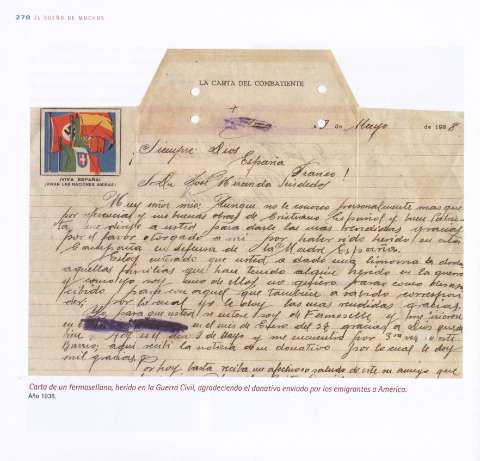 278 EL SUEÑO DE MUCHOS
LA CARTA DEL COMBATIENTE
de Mayo de 1938.
¡Siempre Dios
España
Franco!
¡VIVA ESPAÑA!
¡VIVAN LAS NACIONES AMIGAS!
Sr. Dn José Miranda
Muy señor mio: Aunque no le conozco personalmente mas que
por referencias y sus buenas obras de Cristiano Español y buen
me dirijo a usted para darle las mas rendidas gracias
por el favor otorgado a mi por haber sido herido en esta
Campaña en defensa de la Madre España.
Estoy enterado que usted a dado una limosna a todas
aquellas familias que han tenido algun herido en la guerra
y como yo soy uno de ellos no quiero pasar como
para con aquel que tambien a sabido correspon
der; por lo cual yo le doy las mas rendidas gracias.
para que usted se entere soy de Fermoselle y fuy
en el mes de Enero del gracias a Dios
de Mayo y me encuentro por 3ra vez en este
Barrio, aqui recibí la noticia de su donativo por lo cual le doy
mil gracias.
Por hoy basta reciba un afectuoso saludo de este su amigo que
Carta de un fermosellano, herido en la Guerra Civil, agradeciendo el donativo enviado por los emigrantes a América.
Año 1938.